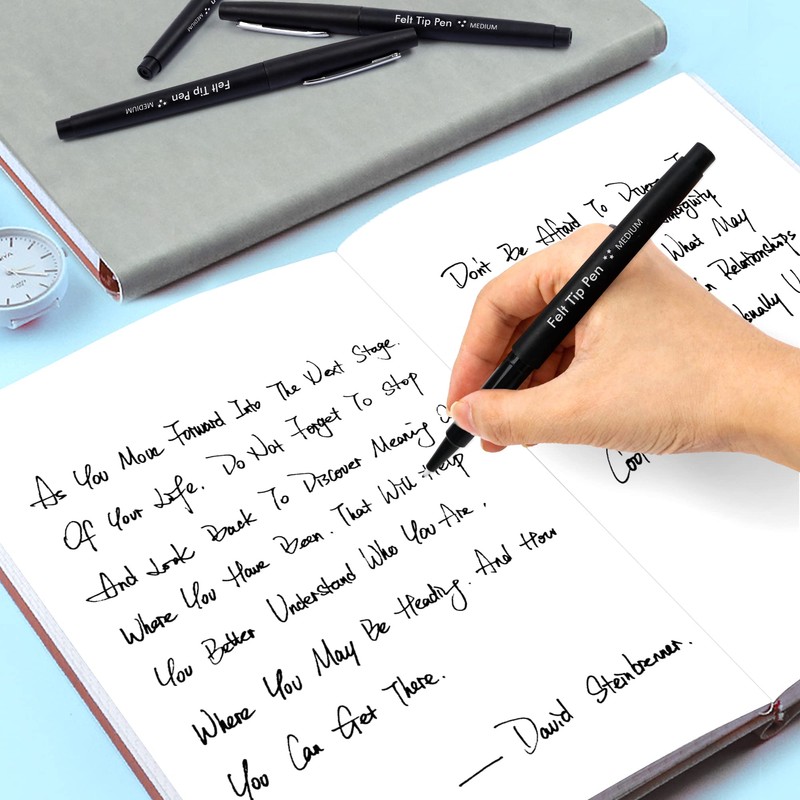 Felt Tip Pen MEDIUM
Felt Tip Pen MEDIUM
MEDIUM
As You Move Forward Into The Next Stage.
Of Your Life. Do Not Forget To Stop
And Look Back To Discover Meaning
Where You Have Been. That Will Help
You Better Understand Who You Are,
Where You May Be Heading. And How
You Can Get There.
— David Steinbrenner.
Don't Be Afraid To
What May
Relationships
Felt Tip Pen MEDIUM